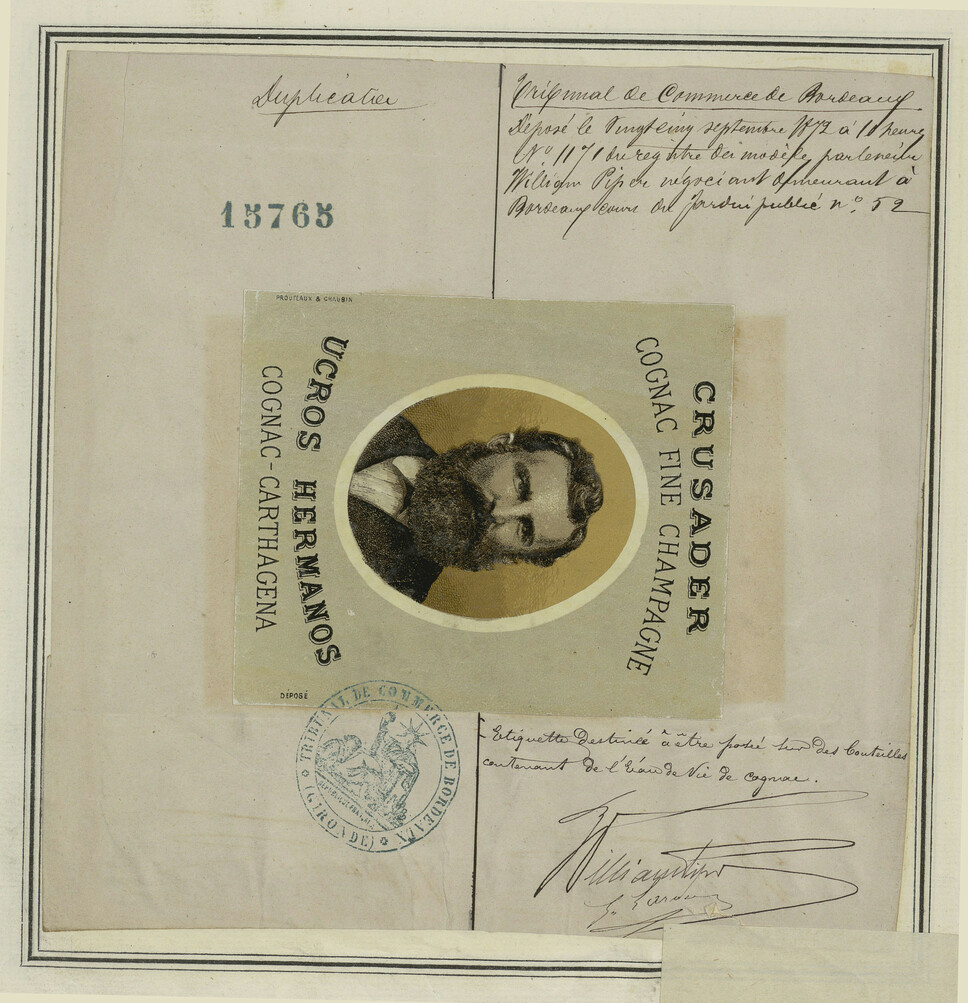 Duplicata
15765
Tribunal de Commerce de Bordeaux
Déposé le vingt cinq septembre 1872 à 11 heure
N° 1171 du registre des modèle, par le sieur
William Piper négociant demeurant à
Bordeaux cours du Jardin public n° 52
PROUTEAUX & CHAUBIN
CRUSADER
COGNAC FINE CHAMPAGNE
UCROS HERMANOS
COGNAC-CARTHAGENA
DÉPOSÉ
TRIBUNAL DE COMMERCE DE BORDEAUX
(GIRONDE)
Etiquette Destinée à être posée sur des bouteilles
contenant de l'Eau de Vie de cognac.
William Piper